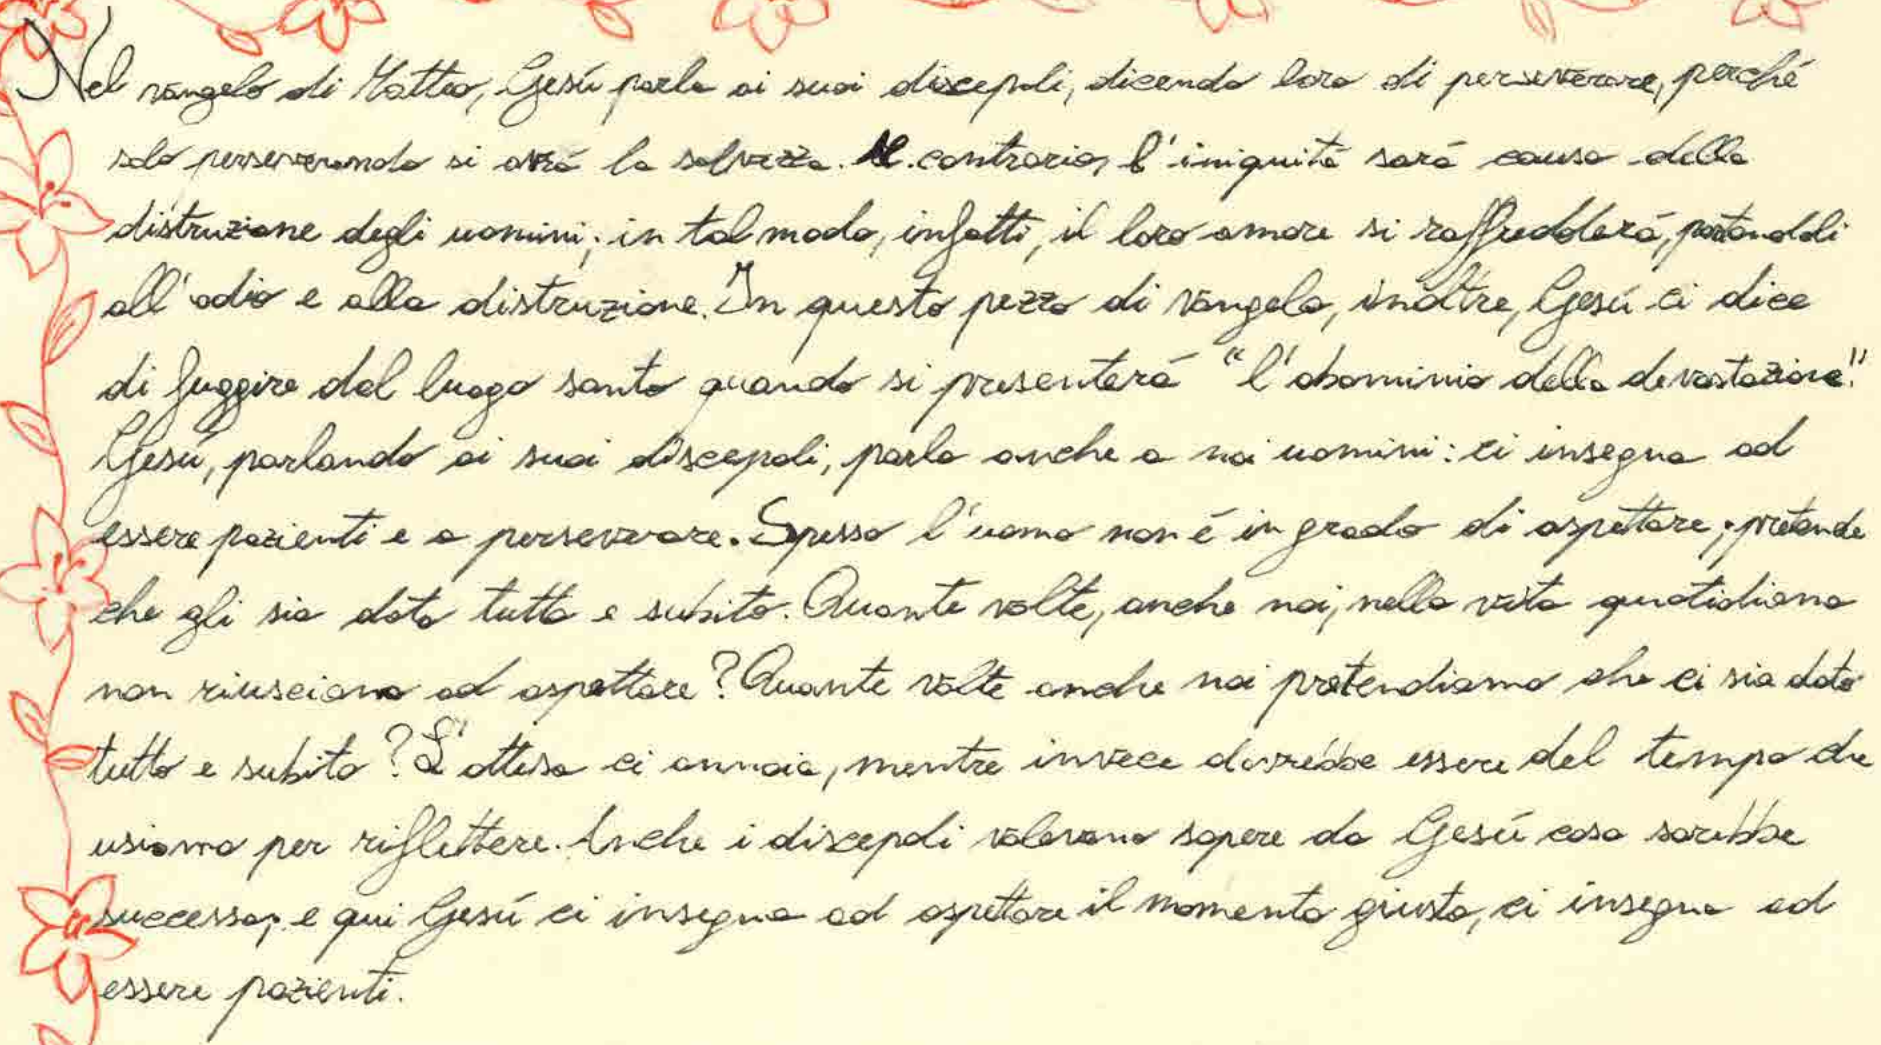 Nel vangelo di Matteo, Gesú parla ai suoi discepoli, dicendo loro di perseverare, perché
solo perseverando si avrá la salvezza. Al contrario, l'iniquitá sará causa della
distruzione degli uomini; in tal modo, infatti, il loro amore si raffredderá, portandoli
all'odio e alla distruzione. In questo pezzo di vangelo, inoltre, Gesú ci dice
di fuggire dal luogo santo quando si presenterá "l'abominio della devastazione".
Gesú, parlando ai suoi discepoli, parla anche a noi uomini: ci insegna ad
essere pazienti e a perseverare. Spesso l'uomo non é in grado di aspettare; pretende
che gli sia dato tutto e subito. Quante volte, anche noi, nella vita quotidiana
non riusciamo ad aspettare? Quante volte anche noi pretendiamo che ci sia dato
tutto e subito? L'attesa ci annoia, mentre invece dovrebbe essere del tempo che
usiamo per riflettere. Anche i discepoli volevano sapere da Gesú cosa sarebbe
successo; e qui Gesú ci insegna ad aspettare il momento giusto, ci insegna ad
essere pazienti.